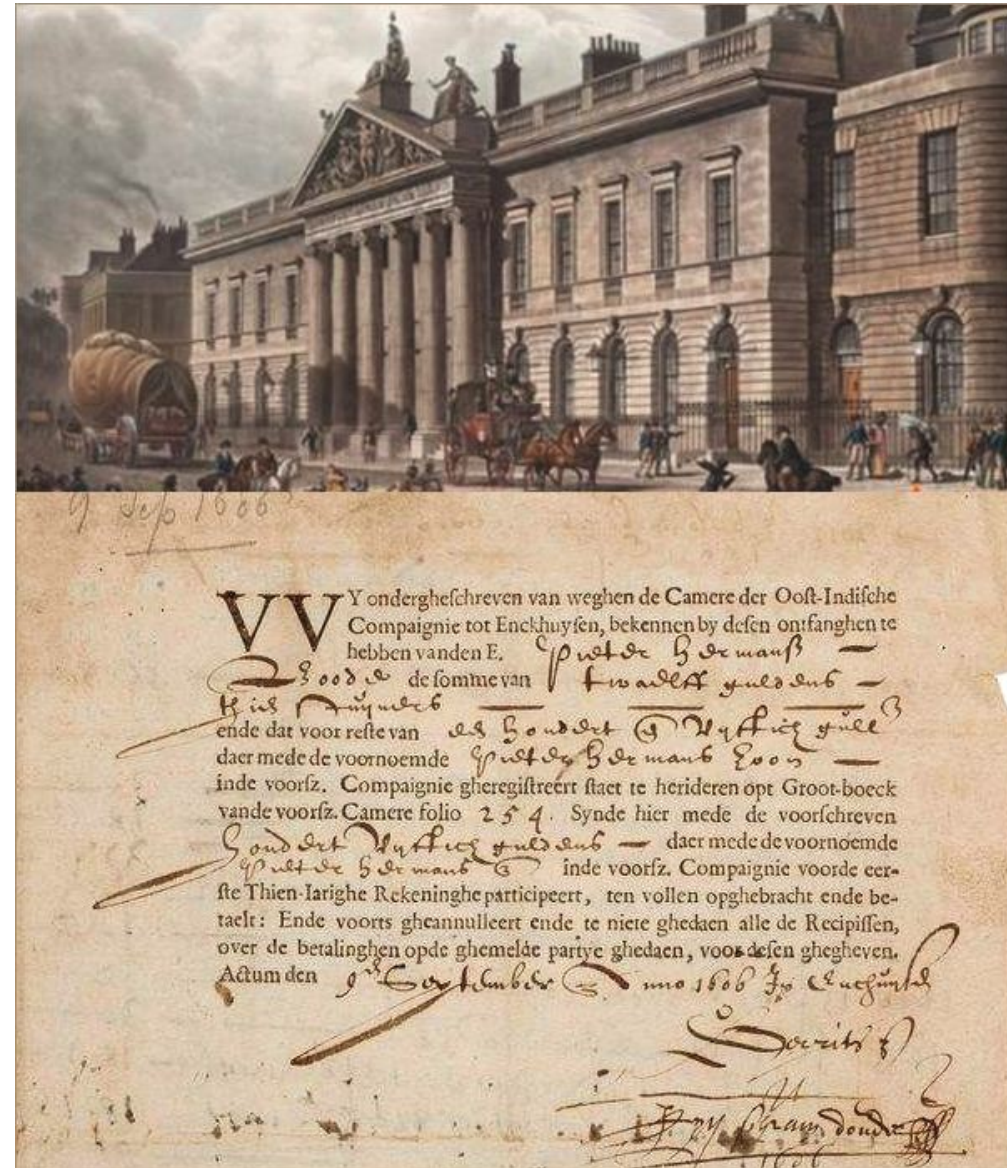 9 Sep 1606
VVY ondergheſchreven van weghen de Camere der Ooſt-Indiſche
Compaignie tot Enckhuyſen, bekennen by deſen ontfanghen te
hebben vanden E. Pieter Hermanß
de ſomme van twaelff guldens
ende dat voor reſte van
daer mede de voornoemde Pieter Hermans zoon
inde voorſz. Compaignie gheregiſtreert ſtaet te herideren opt Groot-boeck
vande voorſz. Camere folio 254. Synde hier mede de voorſchreven
hondert vyftich guldens daer mede de voornoemde
Pieter Hermans inde voorſz. Compaignie voorde eer-
ſte Thien-Iarighe Rekeninghe participeert, ten vollen opghebracht ende be-
taelt: Ende voorts gheannulleert ende te niete ghedaen alle de Recipiſſen,
over de betalinghen opde ghemelde partye ghedaen, voor deſen ghegheven.
Actum den 9 September Anno 1606 In